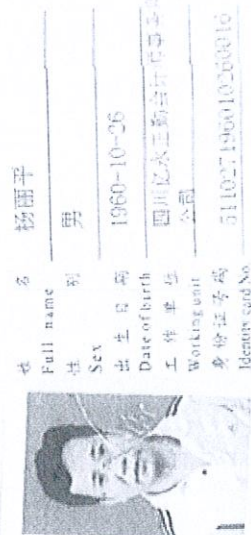 姓 名 杨丽平
Full name
性 别 男
Sex
出 生 日 期 1960-10-26
Date of birth
工 作 单 位 四川亿永正勤会计师事务
公司
Working unit
身 份 证 号 码 511027196010260016
Identity card No.